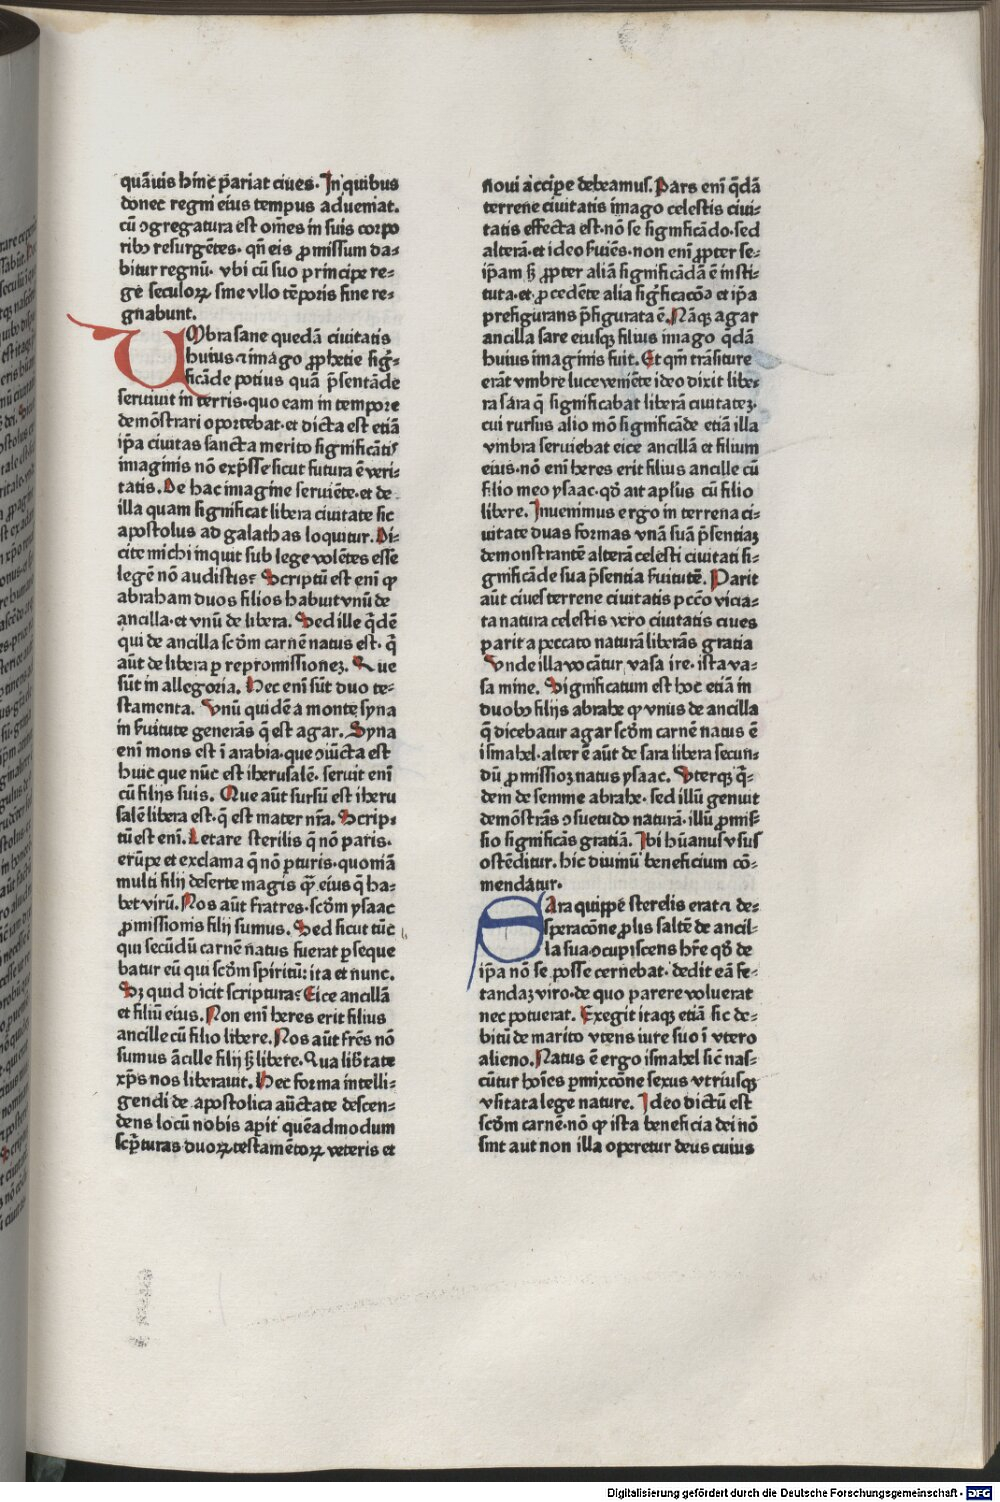 quāuis hinc p̄ariat ciues. In quibus
donec regni eius tempus adueniat.
cū ɔgregatura est om̄es in suis corpo
ribꝫ resurgētes. qn̄ eis ꝓmissum da⸗
bitur regnū. vbi cū suo principe re⸗
ge seculoꝝ sine vllo tēporis fine re⸗
gnabunt.
UMbra sane quedā ciuitatis
huius ⁊ imago ꝓphetie siḡ⸗
ficāde potius quā p̄sentāde
seruiuit in terris. quo eam in tempore
demōstrari oportebat. et dicta est etiā
ip̄a ciuitas sancta merito significātis
imaginis nō exp̄sse sicut futura ē veri⸗
tatis. De hac imagine seruiēte. et de
illa quam significat libera ciuitate sic
apostolus ad galathas loquitur. Di⸗
cite michi inquit sub lege volētes esse
legē nō audistis? Scriptū est eni ꝙ
abraham duos filios habuit vnū de
ancilla. et vnū de libera. Sed ille q̄dē
qui de ancilla scḋm carnē natus est. q̄
aūt de libera p̱ repromissionez. Que
sūt in allegoria. Hec eni sūt duo te⸗
stamenta. Vnū quidē a monte syna
in ẜuitute generās q̄ est agar. Syna
eni mons est ī arabia. que ɔiūcta est
huic que nūc est iherusalē. seruit eni
cū filijs suis. Que aūt sursū est iheru
salē libera est. q̄ est mater nr̄a. Scrip⸗
tū est eni. Letare sterilis q̄ nō paris.
erūpe et exclama q̄ nō ꝑturis. quoniā
multi filij deserte magis qꝫ̄ eius q̄ ha⸗
bet virū. Nos aūt fratres. scḋm ysaac
ꝓmissionis filij sumus. Sed sicut tūc
qui secūdū carnē natus fuerat ꝑseque
batur eū qui scḋm spiritū: ita et nunc.
Sꝫ quid dicit scriptura? Eice ancillā
et filiū eius. Non eni heres erit filius
ancille cū filio libere. Nos aūt fr̄es nō
sumus ācille filij sꝫ libere. Qua lib̄tate
xp̄s nos liberauit. Hec forma intelli⸗
gendi de apostolica auc̄tate descen⸗
dens locū nobis apit quēadmodum
scp̄turas duoꝝ testamētoꝝ veteris et
noui accipe debeamus. Pars eni q̄dā
terrene ciuitatis imago celestis ciui⸗
tatis effecta est. nō se significādo. sed
alterā. et ideo ẜuiēs. non eni ꝓpter se⸗
ip̄am sꝫ ꝓpter aliā significādā ē insti⸗
tuta. et. ꝓcedēte alia siḡficacōe et ip̄a
prefigurans p̄figurata ē. Nāqꝫ agar
ancilla sare eiusqꝫ filius imago q̄dā
huius imaginis fuit. Et qm̄ trāsiture
erāt vmbre luce veniēte ideo dixit libe⸗
ra sara q̄ significabat liberā ciuitatez.
cui rursus alio mō significāde etiā illa
vmbra seruiebat eice ancillā et filium
eius. nō eni heres erit filius ancille cū
filio meo ysaac. qḋ ait apl̄us cū filio
libere. Inuenimus ergo in terrena ci⸗
uitate duas formas vnā suā p̄sentiaꝫ
demonstrantē alterā celesti ciuitati si⸗
gnificāde sua p̄sentia ẜuitutē. Parit
aūt ciues terrene ciuitatis pccō vicia⸗
ta natura celestis vero ciuitatis ciues
parit a peccato naturā liberās gratia
Vnde illa vocātur vasa ire. ista va⸗
sa mine. Significatum est hoc etiā in
duobꝫ filijs abrahe ꝙ vnus de ancilla
q̄ dicebatur agar scḋm carnē natus ē
ismahel. alter ē aūt de sara libera secun⸗
dū ꝓmissioꝫ natus ysaac. Vterqꝫ q̄⸗
dem de semine abrahe. sed illū genuit
demōstrās ɔsuetudo naturā. illū ꝓmis⸗
sio significās gratiā. Ibi hūanus vsus
ostēditur. hic diuinū beneficium cō⸗
mendātur.
SAra quippe sterelis erat ⁊ de⸗
speracōne ꝓlis saltē de ancil⸗
la sua ɔcupiscens hr̄e qḋ de
ip̄a nō se posse cernebat. dedit eā fe⸗
tandaꝫ viro. de quo parere voluerat
nec potuerat. Exegit itaqꝫ etiā sic de⸗
bitū de marito vtens iure suo ī vtero
alieno. Natus ē ergo ismahel sic nas⸗
cūtur hoīes ꝑmixcōne sexus vtriusqꝫ
vsitata lege nature. Ideo dictū est
scḋm carnē. nō ꝙ ista beneficia dei nō
sint aut non illa operetur deus cuius
Digitalisierung gefördert durch die Deutsche Forschungsgemeinschaft - DFG